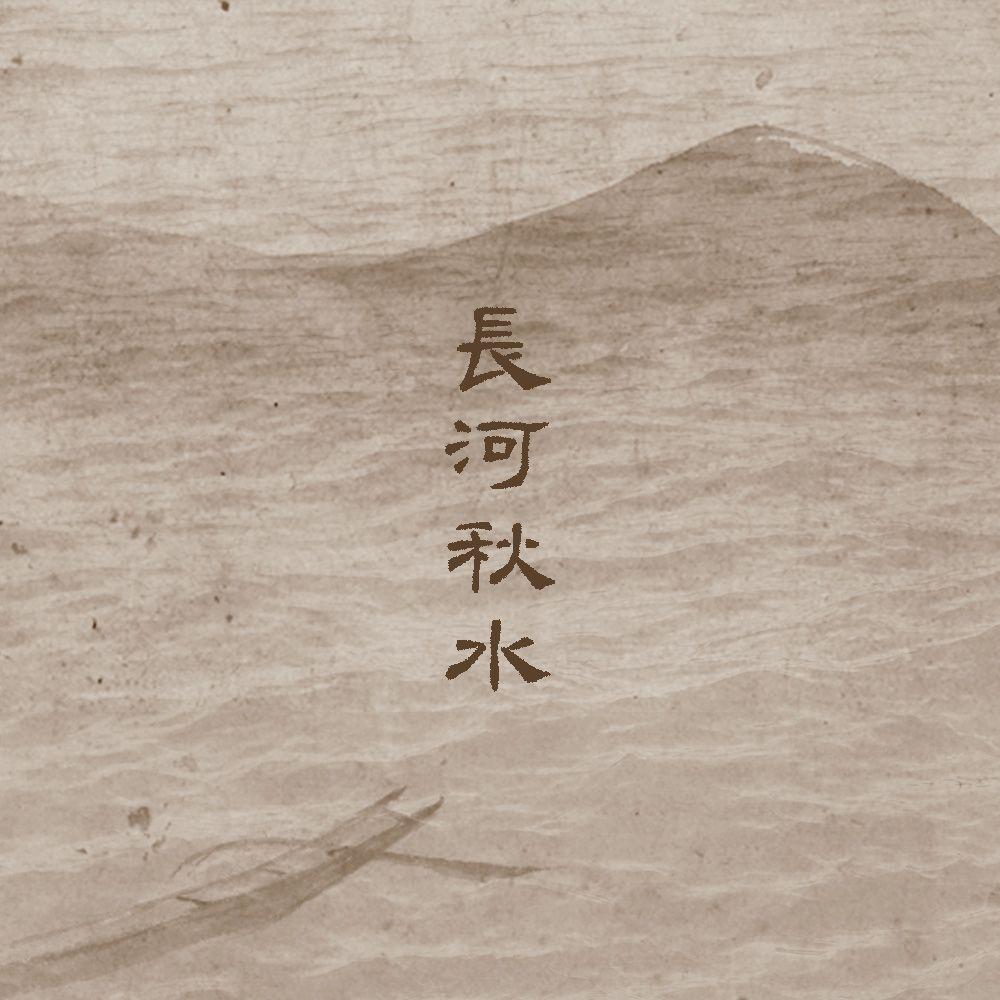 長河秋水